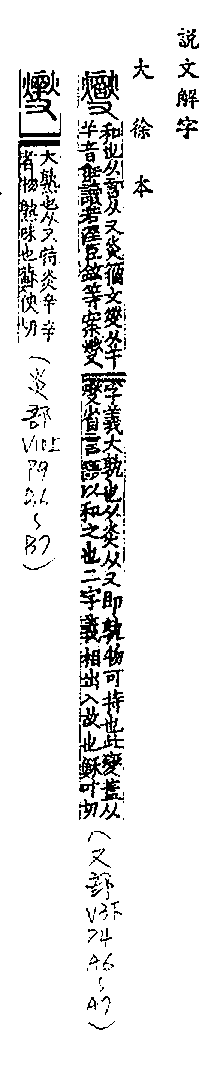 說文解字
大徐本
燮
和也从言从又炎籒文燮从𢆉
𢆉音飪讀若溼臣鉉等案燮
字義大孰也从炎从又即孰物可持也此燮蓋从
燮省言語以和之也二字義相出入故也穌叶切
(又部V3下P4A6~A7)
燮
大熟也从又持炎辛辛
者物熟味也蘇俠切
(炎部V10上P9B6~B7)